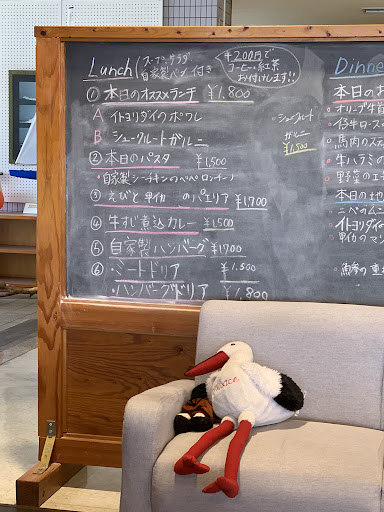 Lunch
スープ、サラダ
自家製パン 付き
+200円で
コーヒー、紅茶
お付けします!!
① 本日のオススメランチ ¥1,800
A イトヨリダイのポワレ
B シュークルートガルニ
② 本日のパスタ ¥1,500
・自家製シーチキンのペペロンチーノ
③ えびと 甲イカ のパエリア ¥1700
④ 牛すじ煮込カレー ¥1,500
⑤ 自家製ハンバーグ ¥1,700
⑥ ・ミートドリア ¥1,500
・ハンバーグドリア ¥1,800
・シュークルート
ガルニ
¥1,500
Dinne
本日のお
・オリーブ牛
・仔牛ロース
・馬肉のステ
・牛ハラミの
・野菜の
本日の地
・ニベのム
・イトヨリダイ
・甲イカのマ
Alsace